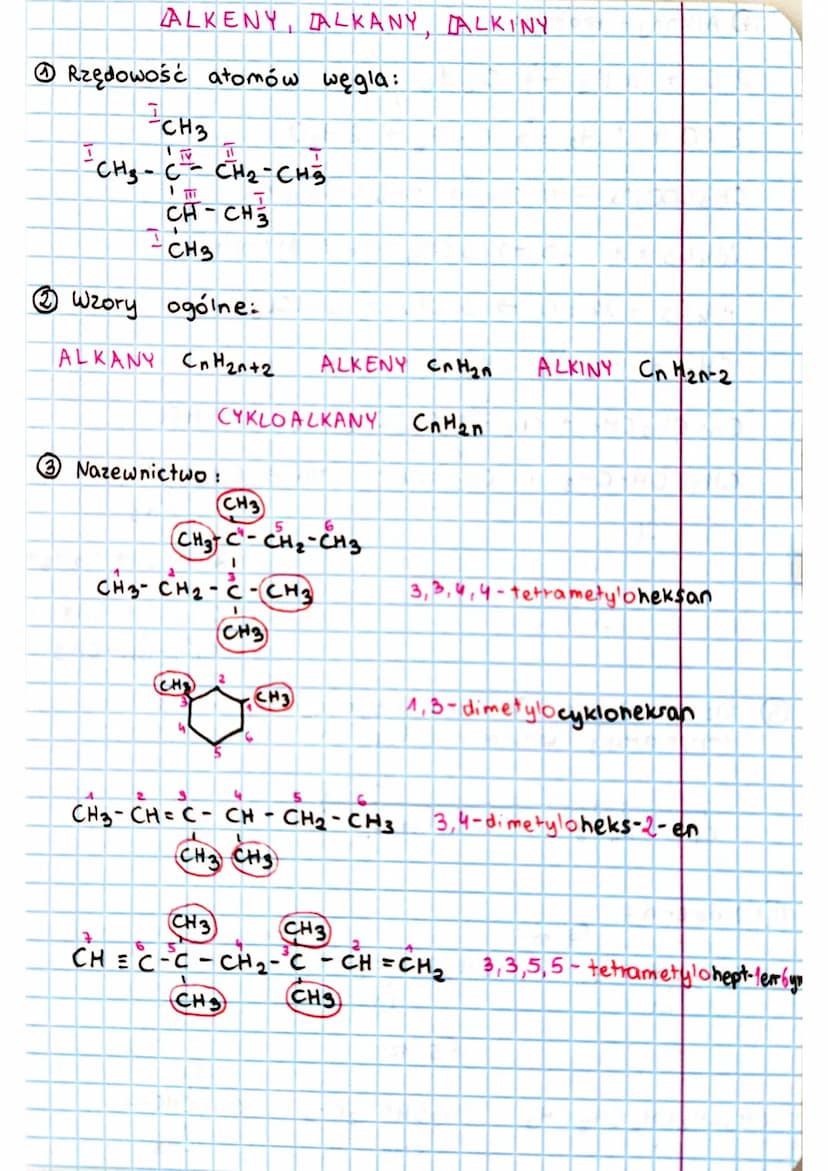 ALKENY, ALKANY, ALKINY
① Rzędowość atomów węgla:
I CH3
I CH3 - C IV - CH2 II - CH3 I
CH III - CH3 I
I CH3
② Wzory ogólne:
ALKANY CnH2n+2 ALKENY CnH2n ALKINY CnH2n-2
CYKLOALKANY CnH2n
③ Nazewnictwo:
CH3
CH3 - C - CH2 - CH3
4 5 6
CH3 - CH2 - C - CH3 3,3,4,4-tetrametyloheksan
1 2 3
CH3
CH3 2 CH3 1,3-dimetylocykloheksan
3 1
4 6
5
1 2 3 4 5 6
CH3 - CH = C - CH - CH2 - CH3 3,4-dimetyloheks-2-en
CH3 CH3
CH3 CH3
7 6 5 4 3 2 1
CH ≡ C - C - CH2 - C - CH = CH2 3,3,5,5-tetrametylohept-1en6yn
CH3 CH3